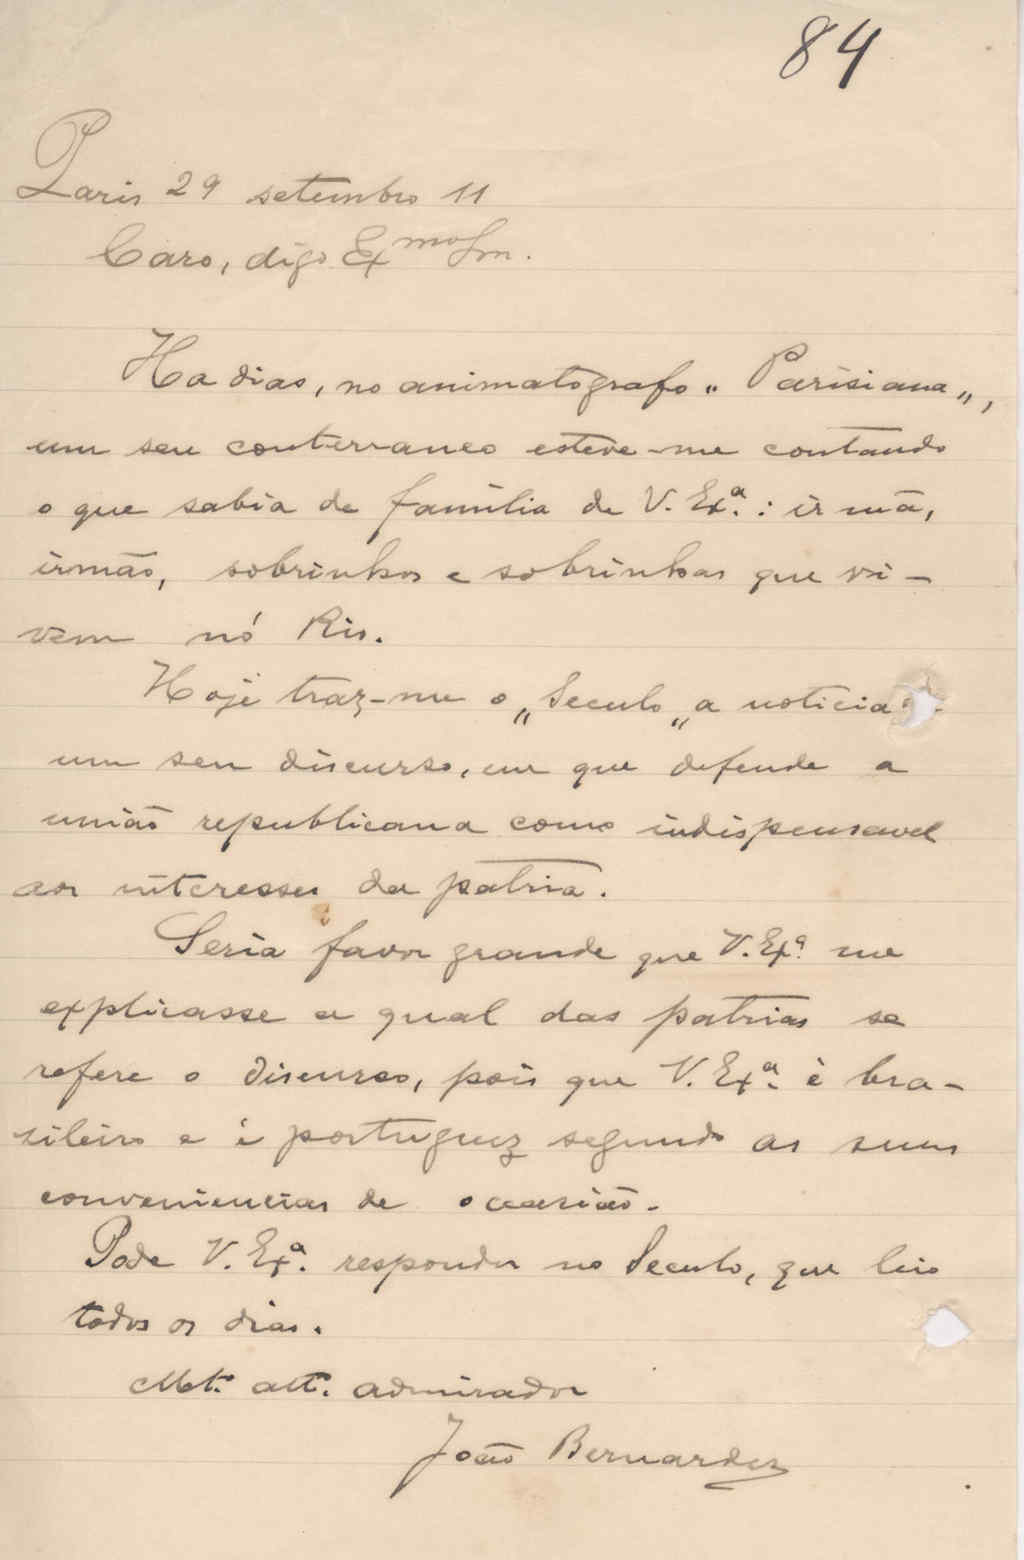 84
Paris 29 setembro 11
Caro, digo Exmo Snr.
Ha dias, no animatógrafo „ Parisiana „,
um seu conterraneo esteve-me contando
o que sabia de família de V. Exª.: irmã,
irmão, sobrinhos e sobrinhas que vi-
vem nó Rio.
Hoje traz-me o „Seculo„ a noticia
um seu discurso, em que defende a
união republicana como indispensavel
aos interesses da patria.
Seria favor grande que V. Exª. me
explicasse a qual das patrias se
refere o discurso, pois que V. Exª. é bra-
sileiro e é portuguez segundo as suas
conveniencias de occasião.
Pode V. Exª. responder no Seculo, que leio
todos os dias.
Mtº. attº. admirador
João Bernardes